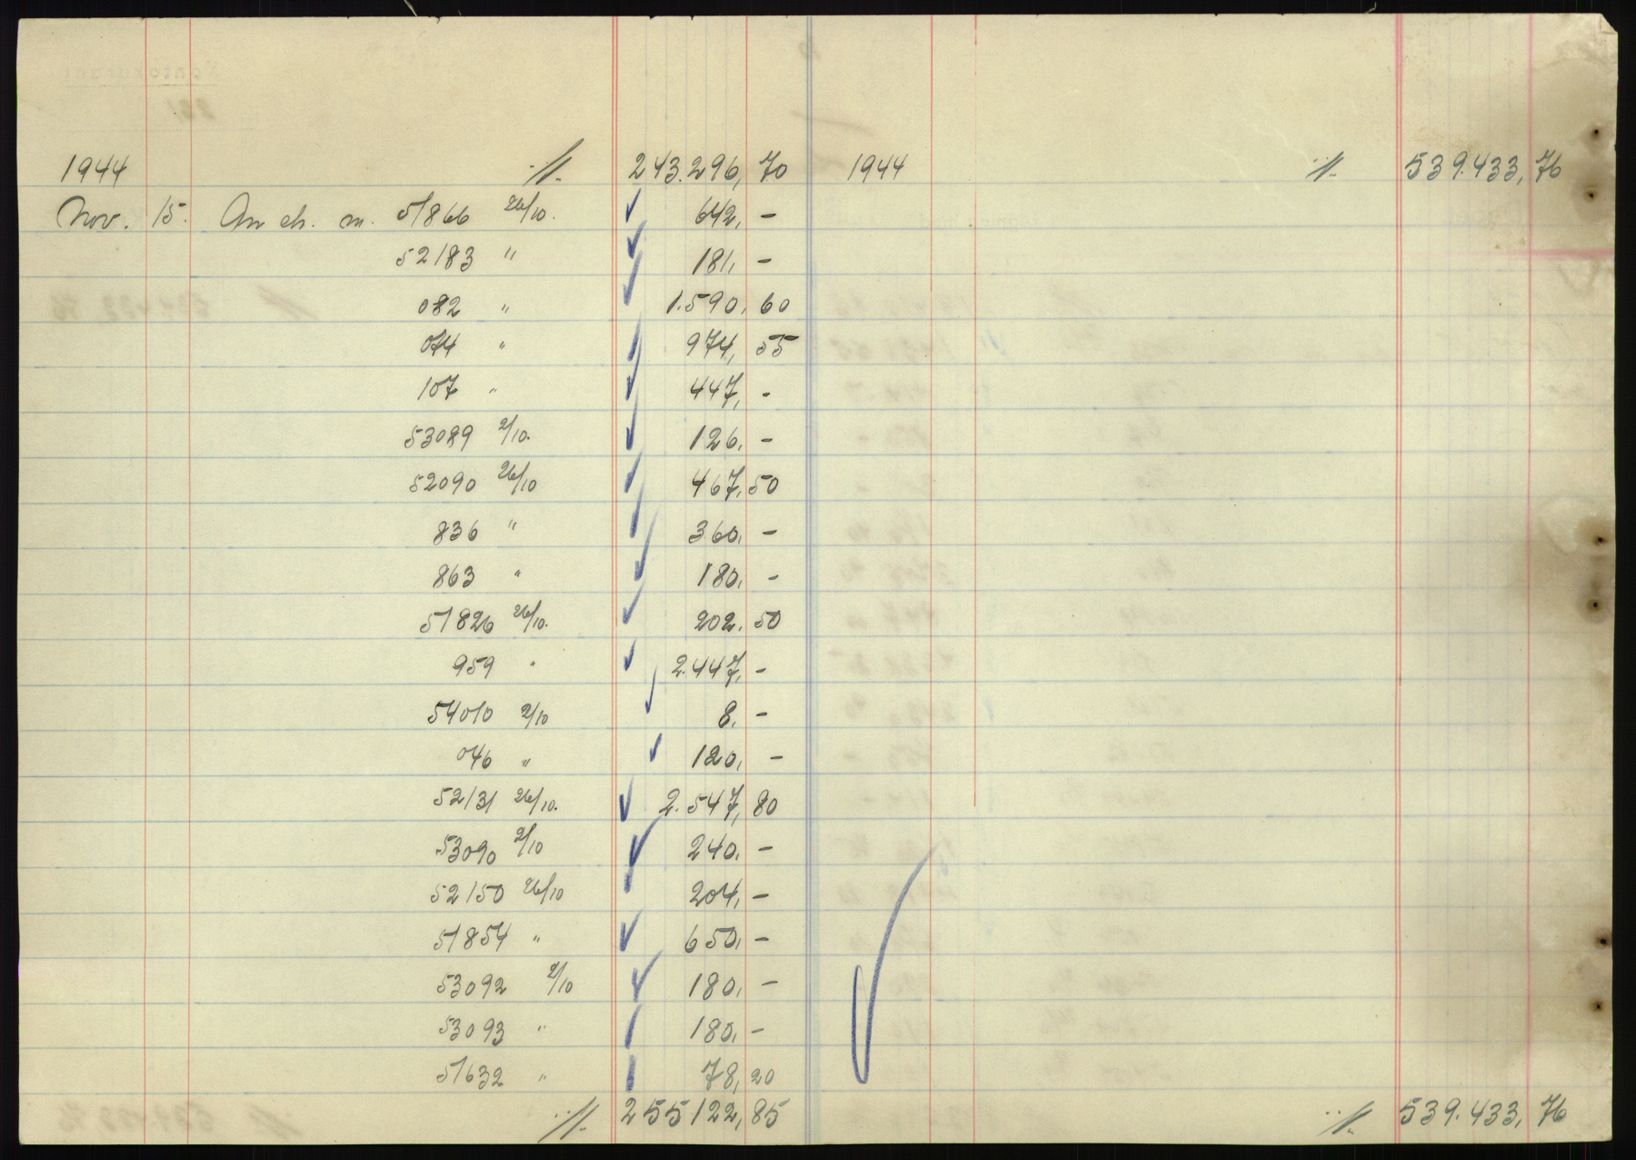 1944 ./. 243.296,70 1944 ./. 539.433,76
Nov. 15. An ch. m. 51866 26/10. 642,-
52183 " 181,-
082 " 1.590,60
074 " 974,55
107 " 447,-
53089 2/10. 126,-
52090 26/10 467,50
836 " 360,-
863 " 180,-
51826 26/10. 202,50
959 " 2.447,-
54010 2/10 8,-
046 " 120,-
52131 26/10. 2.547,80
53090 2/10 240,-
52150 26/10 204,-
51854 " 650,-
53092 2/10 180,-
53093 " 180,-
51632 " 78,20
./. 255122,85 ./. 539.433,76